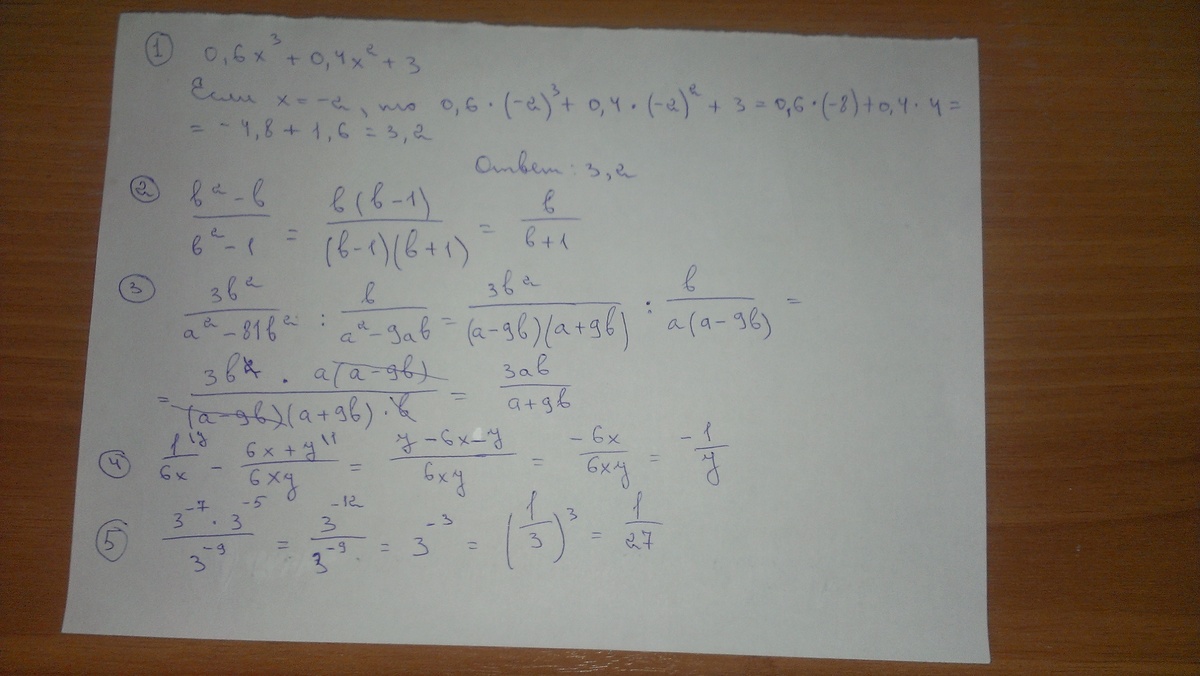 ① 0,6x³ + 0,4x² + 3
Если x = -2, то 0,6 · (-2)³ + 0,4 · (-2)² + 3 = 0,6 · (-8) + 0,4 · 4 =
= -4,8 + 1,6 = 3,2
Ответ: 3,2
② (b² - b)/(b² - 1) = b(b - 1)/((b-1)(b+1)) = b/(b+1)
③ 3b²/(a² - 81b²) : b/(a² - 9ab) = 3b²/((a-9b)(a+9b)) : b/(a(a-9b)) =
= (3b² · a(a-9b))/((a-9b)(a+9b) · b) = 3ab/(a+9b)
④ 1\y/6x - (6x + y\1)/6xy = (y - 6x - y)/6xy = -6x/6xy = -1/y
⑤ (3⁻⁷ · 3⁻⁵)/3⁻⁹ = 3⁻¹²/3⁻⁹ = 3⁻³ = (1/3)³ = 1/27